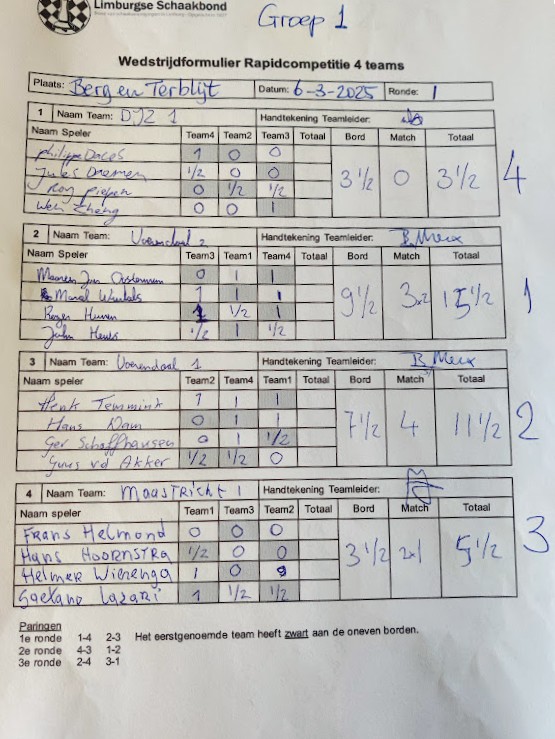 Limburgse Schaakbond
Groep 1
Wedstrijdformulier Rapidcompetitie 4 teams
Plaats: Berg en Terblijt Datum: 6-3-2025 Ronde: 1
1 Naam Team: DJZ 1 Handtekening Teamleider:
Naam Speler Team4 Team2 Team3 Totaal Bord Match Totaal
1 0 0
Jules 1/2 0 0
Roy Piepen 0 1/2 1/2
Wei Zheng 0 0 1
3 1/2 0 3 1/2 4
2 Naam Team: Voerendaal 2 Handtekening Teamleider: B. Merx
Naam Speler Team3 Team1 Team4 Totaal Bord Match Totaal
0 1 1
1 1 1
Roger 1 1/2 1
John 1/2 1 1/2
9 1/2 3x2 15 1/2 1
3 Naam Team: Voerendaal 1 Handtekening Teamleider: B. Merx
Naam speler Team2 Team4 Team1 Totaal Bord Match Totaal
Henk Temmink 1 1 1
Hans Dam 0 1 1
Ger Schaffhausen 0 1 1/2
Guus vd Akker 1/2 1/2 0
7 1/2 4 11 1/2 2
4 Naam Team: MAASTRICHT 1 Handtekening Teamleider:
Naam speler Team1 Team3 Team2 Totaal Bord Match Totaal
FRANS HELMOND 0 0 0
HANS HOORNSTRA 1/2 0 0
HELMER WIERENGA 1 0 0
GAETANO LAZARI 1 1/2 1/2
3 1/2 2x1 5 1/2 3
Paringen
1e ronde 1-4 2-3 Het eerstgenoemde team heeft zwart aan de oneven borden.
2e ronde 4-3 1-2
3e ronde 2-4 3-1